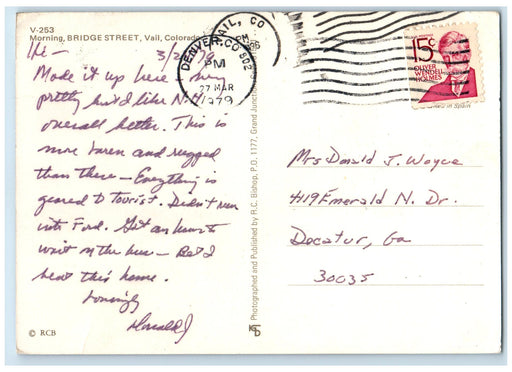 V-253
Morning, BRIDGE STREET, Vail, Colorado
Hi -
Made it up here - very
pretty but I'd like N.H.
overall better. This is
more baren and rugged
than there - Everything is
geared to tourist. Didn't run
into Ford. Got an hour to
wait on the bus - Bet I
beat this home.
Lovingly
Donald J
© RCB
Photographed and Published by R.C. Bishop, P.O. 1177, Grand Junction
VAIL, CO
PM
DENVER, CO 802
PM
27 MAR
1979
15c
OLIVER
WENDELL
HOLMES
Mrs Donald J. Wayca
4119 Emerald N. Dr.
Decatur, Ga
30035